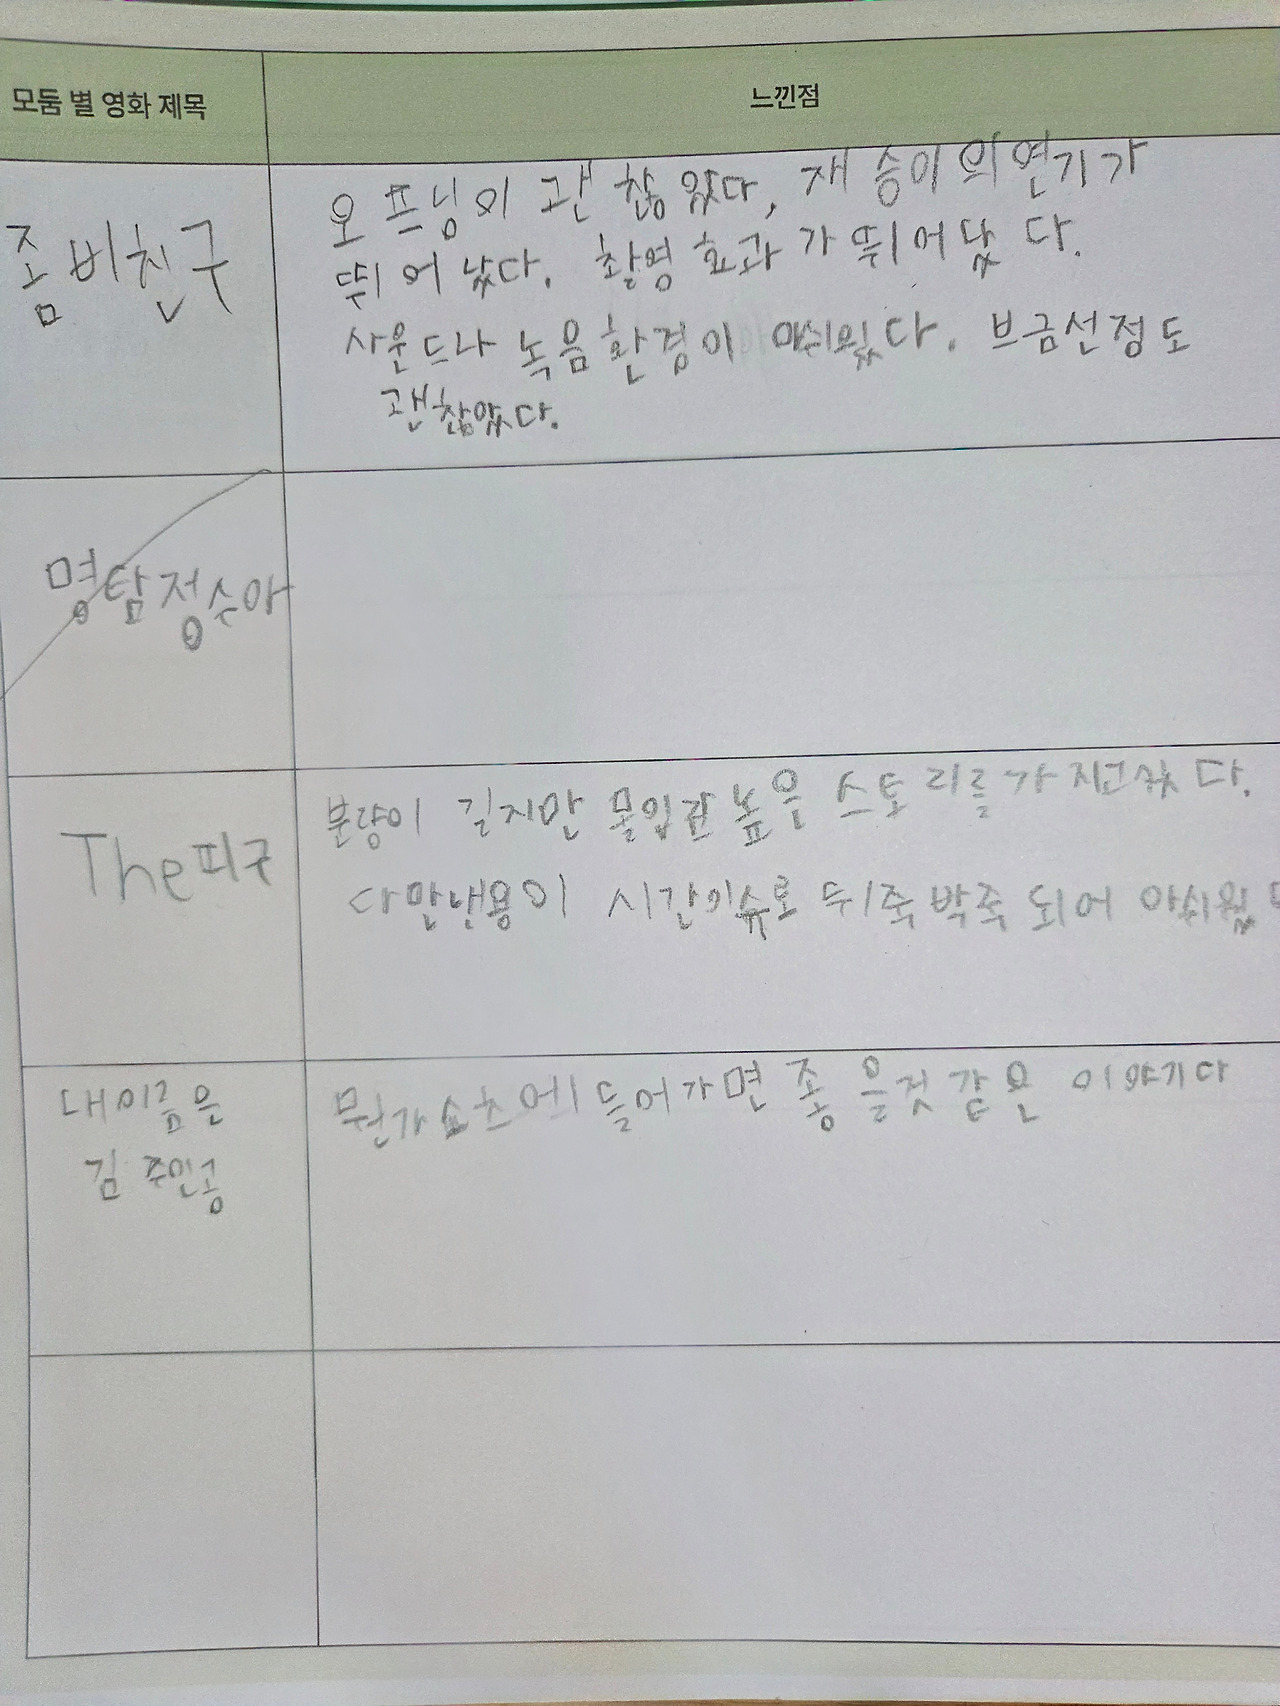 모둠 별 영화 제목
느낀점
좀비친구
오프닝이 괜찮았다, 재승이의연기가
뛰어났다. 촬영 효과가 뛰어났다.
사운드나 녹음환경이 아쉬웠다. 브금선정도
괜찮았다.
명탐정수아
The피구
분량이 길지만 몰입감 높은 스토리를가지고있다.
다만내용이 시간이슈로 뒤죽박죽 되어 아쉬웠다
내이름은
김 주인공
뭔가쇼츠에들어가면 좋을것 같은 이야기다